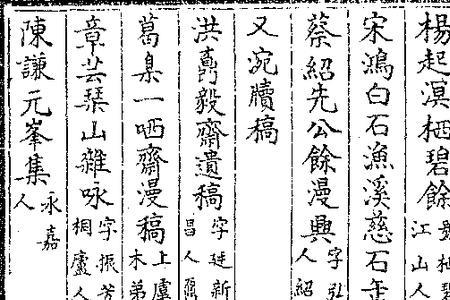 楊起溟栖碧餘
宋鴻白石漁溪慈石
蔡紹先公餘漫興 字弘 人紹
又宛牘稿
洪嵩毅齋遺稿 字廷新 昌人
葛臬一哂齋漫稿 上虞 木弟
章芸琹山雜咏 字振芳 桐廬人
陳謙元峯集 永嘉人